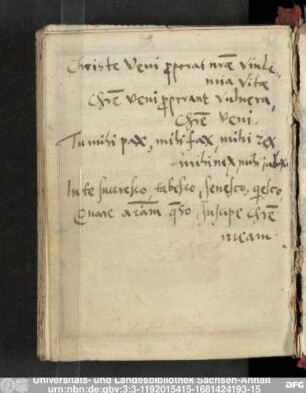 Christe veni properat nrae vinde
mia vitae
Chre veni properant vulnera,
Chre veni.
Tu mihi pax, mihi fax, mihi rex
mihi nex, mihi
In te succresco, tabesco, senesco,
Quare aram qso, suscipe Chre
meam
Universitäts- und Landesbibliothek Sachsen-Anhalt
urn:nbn:de:gbv:3:3-1192015415-1681424193-15
DFG